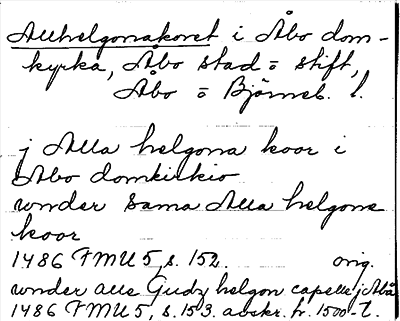 Allhelgonakoret i Åbo dom-
kyrka, Åbo stad = stift,
Åbo = Björneb. l.
j Alla helgona koor i
Abo domkirkio
wnder sama Alla helgone
koor
1486 FMU 5, s. 152. orig.
wnder alle Gudz helgon capelle j Abo
1486 FMU 5, s. 153. avskr. fr. 1500-t.